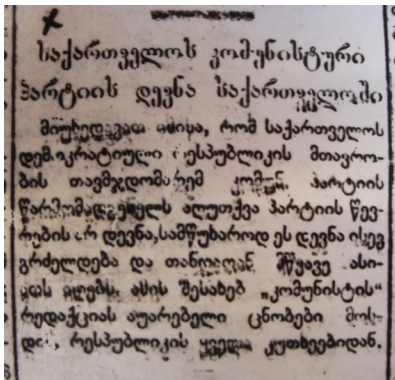 საქართველოს კომუნისტური
პარტიის დევნა საქართველოში
მიუხედავათ იმისა, რომ საქართველოს
დემოკრატიული რესპუბლიკის მთავრო-
ბის თავმჯდომარემ კომუნ. პარტიის
წარმომადგენელს აღუთქვა პარტიის წევ-
რების არ დევნა, სამწუხაროდ ეს დევნა ისევ
გრძელდება და თანდათან მწვავე ხასი-
ათს იღებს. ამის შესახებ „კომუნისტის“
რედაქციას აუარებელი ცნობები მოს-
დის, რესპუბლიკის ყველა კუთხეებიდან.